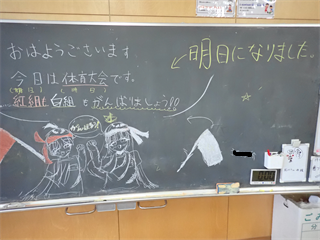 おはようございます。
今日は体育大会です。
紅組も白組もがんばりましょう!!
がんばろう!
明日になりました。